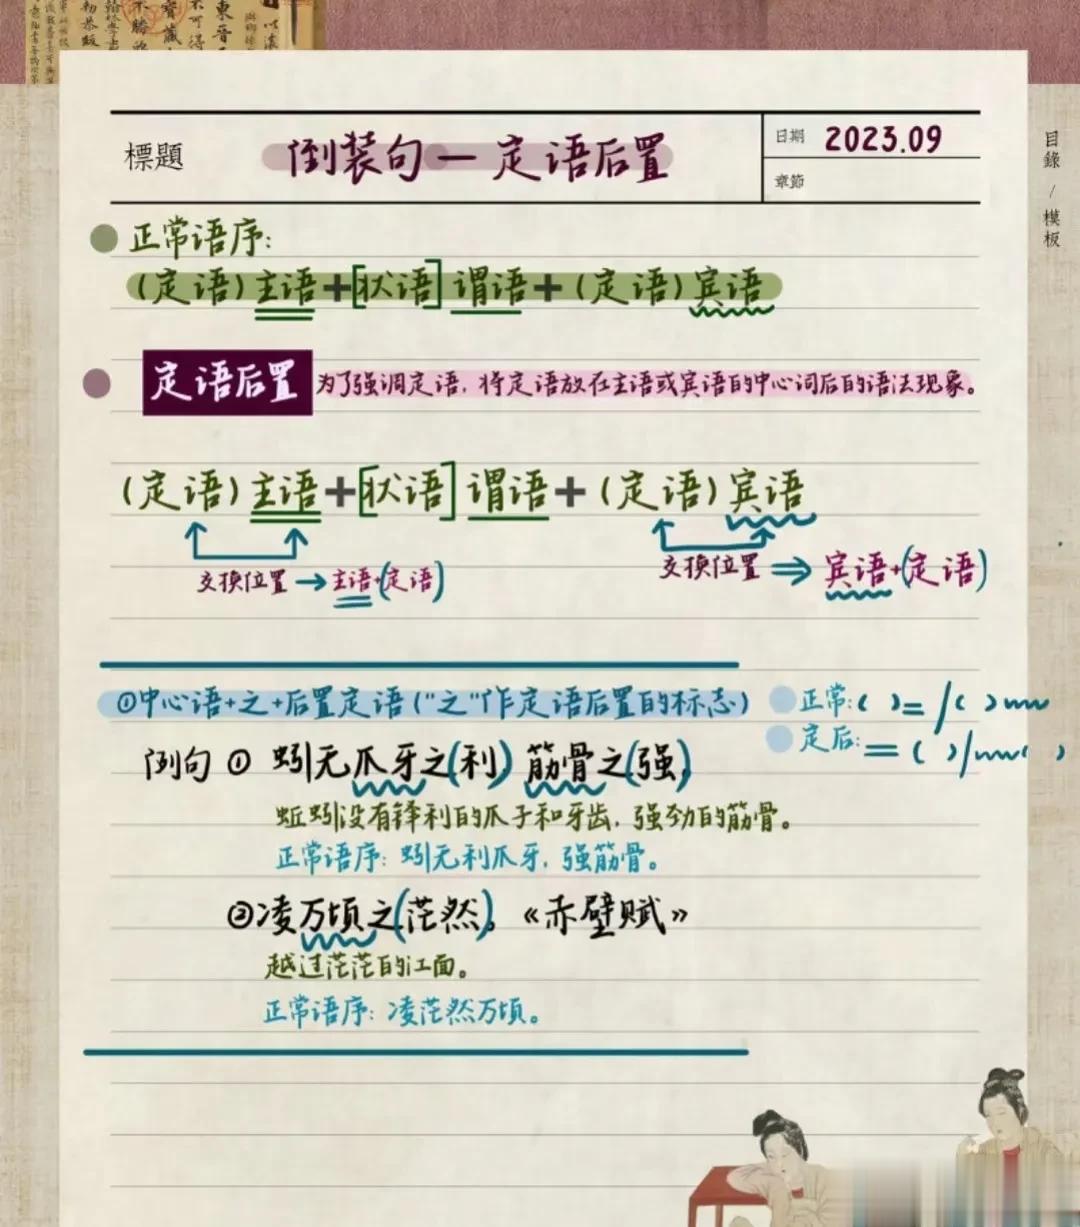 標題
倒装句—定语后置
日期 2023.09
章節
目錄 / 模板
正常语序:
(定语)主语+[状语]谓语+(定语)宾语
定语后置 为了强调定语,将定语放在主语或宾语的中心词后的语法现象。
(定语)主语+[状语]谓语+(定语)宾语
交换位置→主语+(定语)
交换位置⇒宾语+(定语)
①中心语+之+后置定语("之"作定语后置的标志)
正常:( )=/( )
定后:=( )/( )
例句① 蚓无爪牙之(利) 筋骨之(强)
蚯蚓没有锋利的爪子和牙齿,强劲的筋骨。
正常语序:蚓无利爪牙,强筋骨。
②凌万顷之(茫然)。《赤壁赋》
越过茫茫的江面。
正常语序:凌茫然万顷。